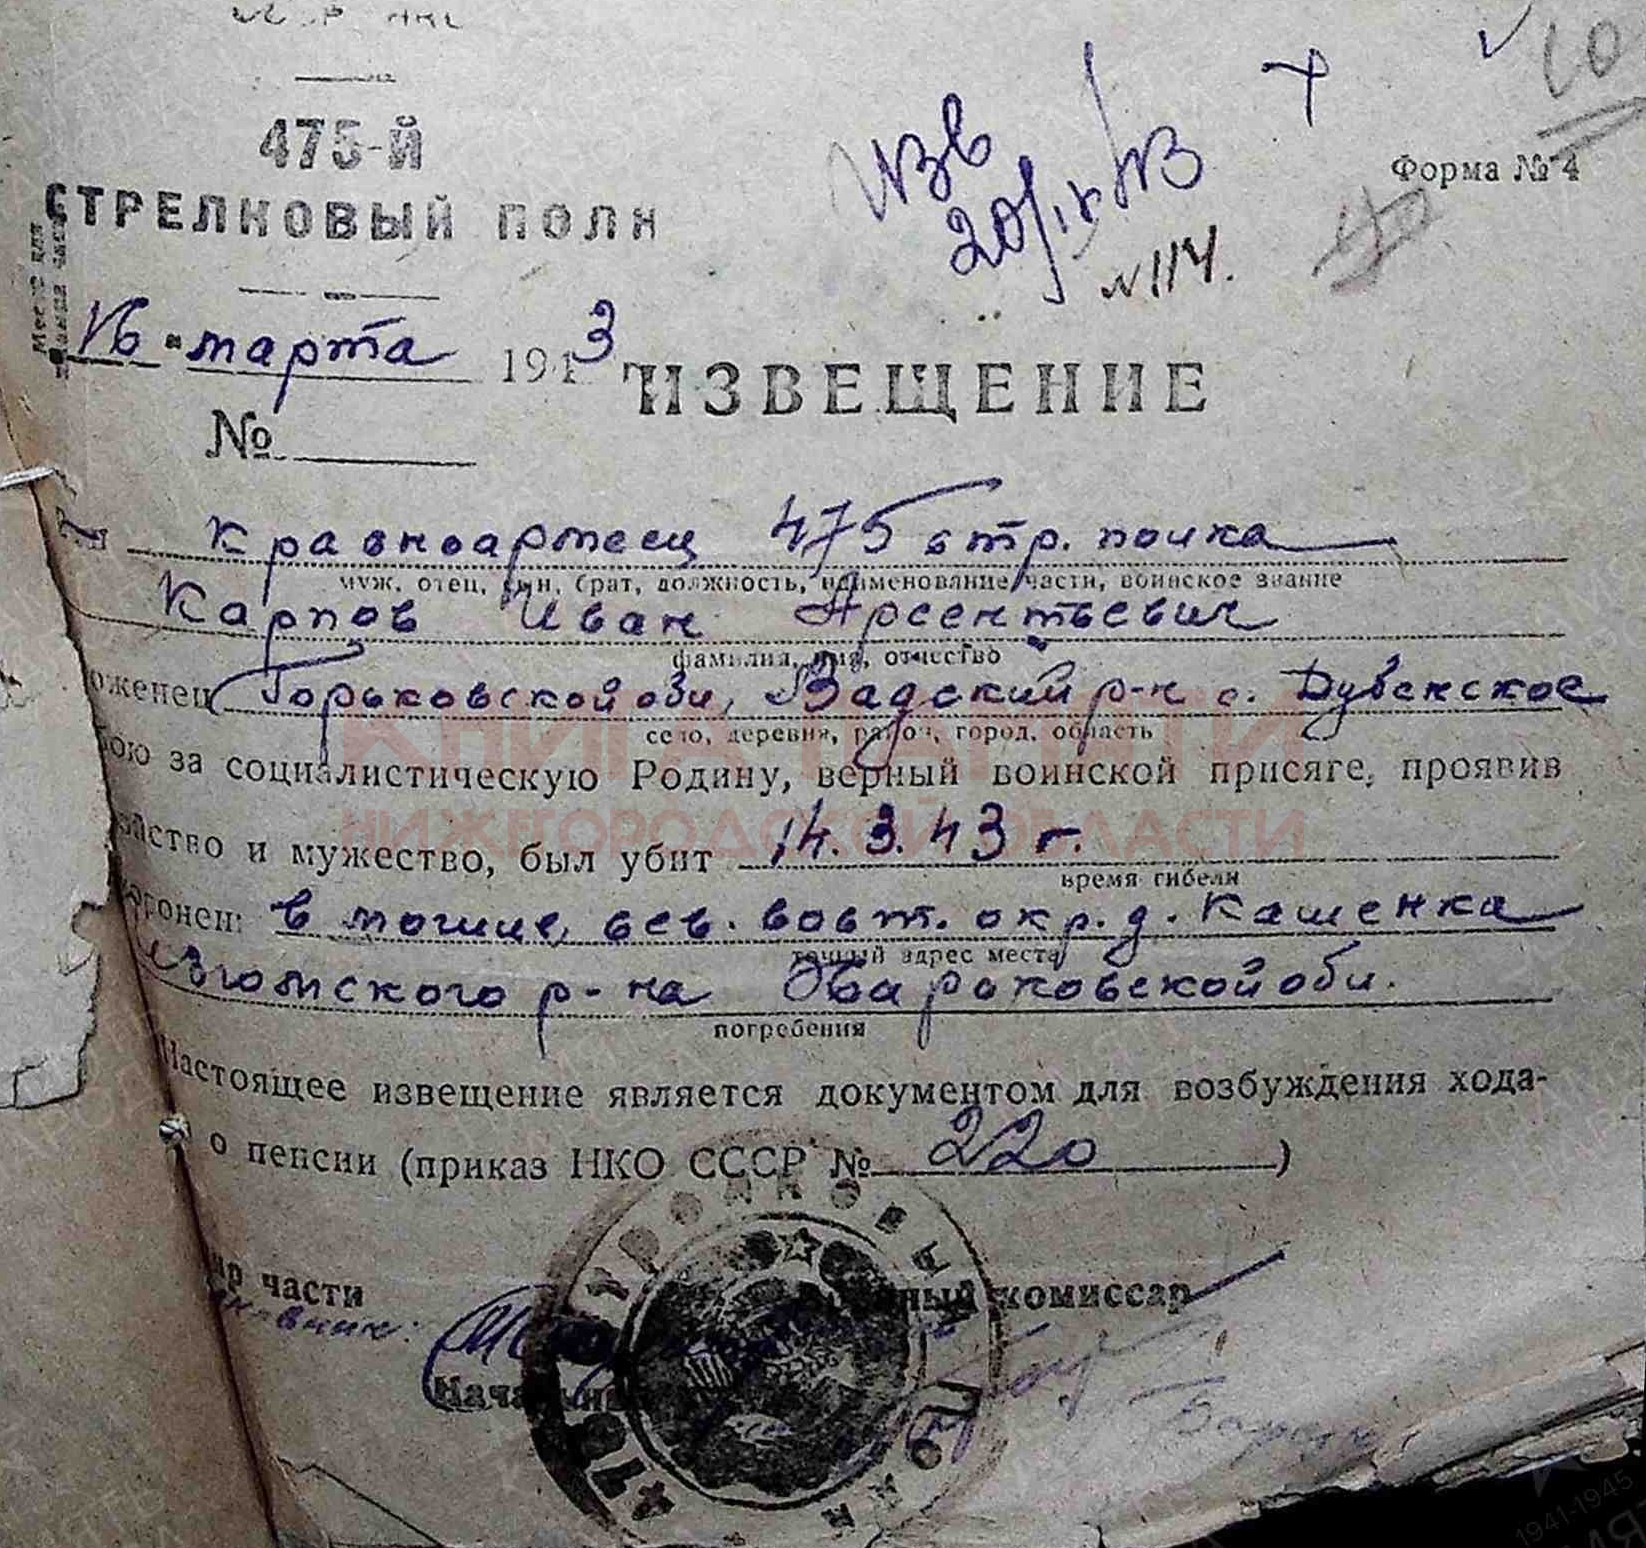 475-Й
СТРЕЛКОВЫЙ ПОЛК
Изв
20/IV 43
№ 114.
Форма № 4
16 марта 1943
ИЗВЕЩЕНИЕ
№
красноармеец 475 стр. полка
муж, отец, сын, брат, должность, наименование части, воинское звание
Карпов Иван Арсентьевич
фамилия, имя, отчество
оженец Горьковской обл, Вадский р-н с. Дубенское
село, деревня, район, город, область
бою за социалистическую Родину, верный воинской присяге, проявив
йство и мужество, был убит 14.3.43 г.
время гибели
оронен: в могиле, сев. вост. окр. д. Кашенка
точный адрес места
р-на обл.
погребения
Настоящее извещение является документом для возбуждения хода-
о пенсии (приказ НКО СССР № 220 )
ир части
Военный комиссар
Начальник
КНИГА ПАМЯТИ
НИЖЕГОРОДСКОЙ ОБЛАСТИ
1941-1945